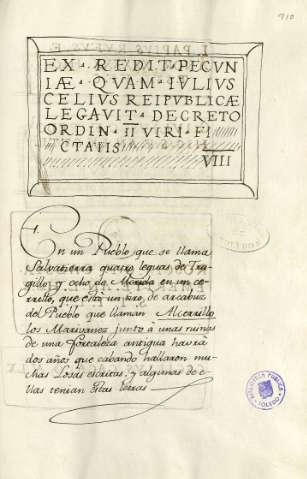 210
EX · REDIT · PECVN
IÆ · QVAM · IVLIVS
CELIVS REIPVBLICÆ
LEGAVIT · DECRETO
ORDIN · II VIRI · FI
CTATIS
VIII
En un Pueblo que se llama
Salvatierra quatro leguas de Tru-
gillo y ocho de Merida en un ce-
rrillo, que está un tiro de arcabuz
del Pueblo que llaman Alcerrillo
los Mariyañez junto à unas ruinas
de una fortaleza antigua havrà
dos años que cabando hallaron mu-
chas Losas escritas: y algunas de e-
llas tenian estas letras
BIBLIOTECA PUBLICA
TOLEDO